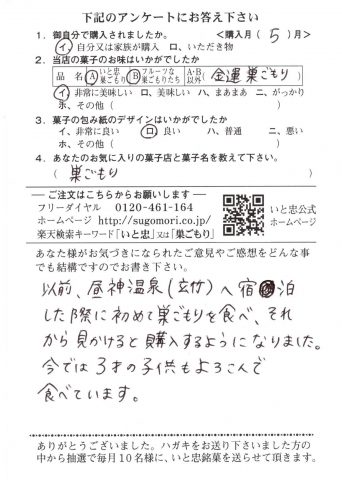 下記のアンケートにお答え下さい
1. 御自分で購入されましたか。 <購入月( 5 )月>
イ、自分又は家族が購入 ロ、いただき物
2. 当店の菓子のお味はいかがでしたか
品 名 Ⓐ いと忠巣ごもり Ⓑ フルーツな巣ごもりたち A・B以外 ( 金運巣ごもり )
イ、非常に美味しい ロ、美味しい ハ、まあまあ ニ、がっかり
ホ、その他( )
3. 菓子の包み紙のデザインはいかがでしたか
イ、非常に良い ロ、良い ハ、普通 ニ、悪い
ホ、その他( )
4. あなたのお気に入りの菓子店と菓子名を教えて下さい。
( 巣ごもり )
―ご注文はこちらからお願いします―
フリーダイヤル 0120-461-164
ホームページ http://sugomori.co.jp/
楽天検索キーワード「いと忠」又は「巣ごもり」
いと忠公式
ホームページ
あなた様がお気づきになられたご意見やご感想をどんな事
でも結構ですのでお書き下さい。
以前、昼神温泉(立竹)へ宿泊
した際に初めて巣ごもりを食べ、それ
から見かけると購入するようになりました。
今では3才の子供もよろこんで
食べています。
ありがとうございました。ハガキをお送り下さいました方の
中から抽選で毎月10名様に、いと忠銘菓を送らせて頂きます。